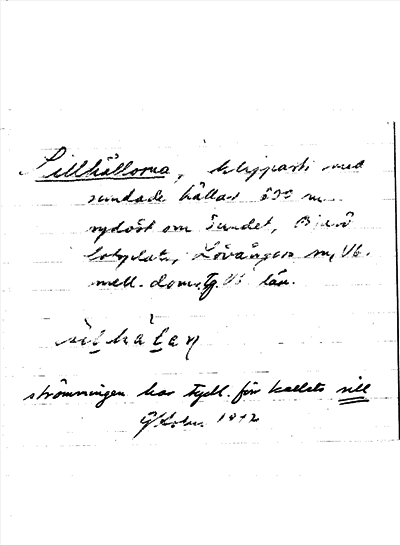 Sillhällorna, klipparti med
rundade hällar 830 m
sydöst om Sundet, Bjurö
lotsplats, Lövångers sn, Vb.
mell. doms. Vb län.
strömmingen har tydl. förr kallats sill
1912